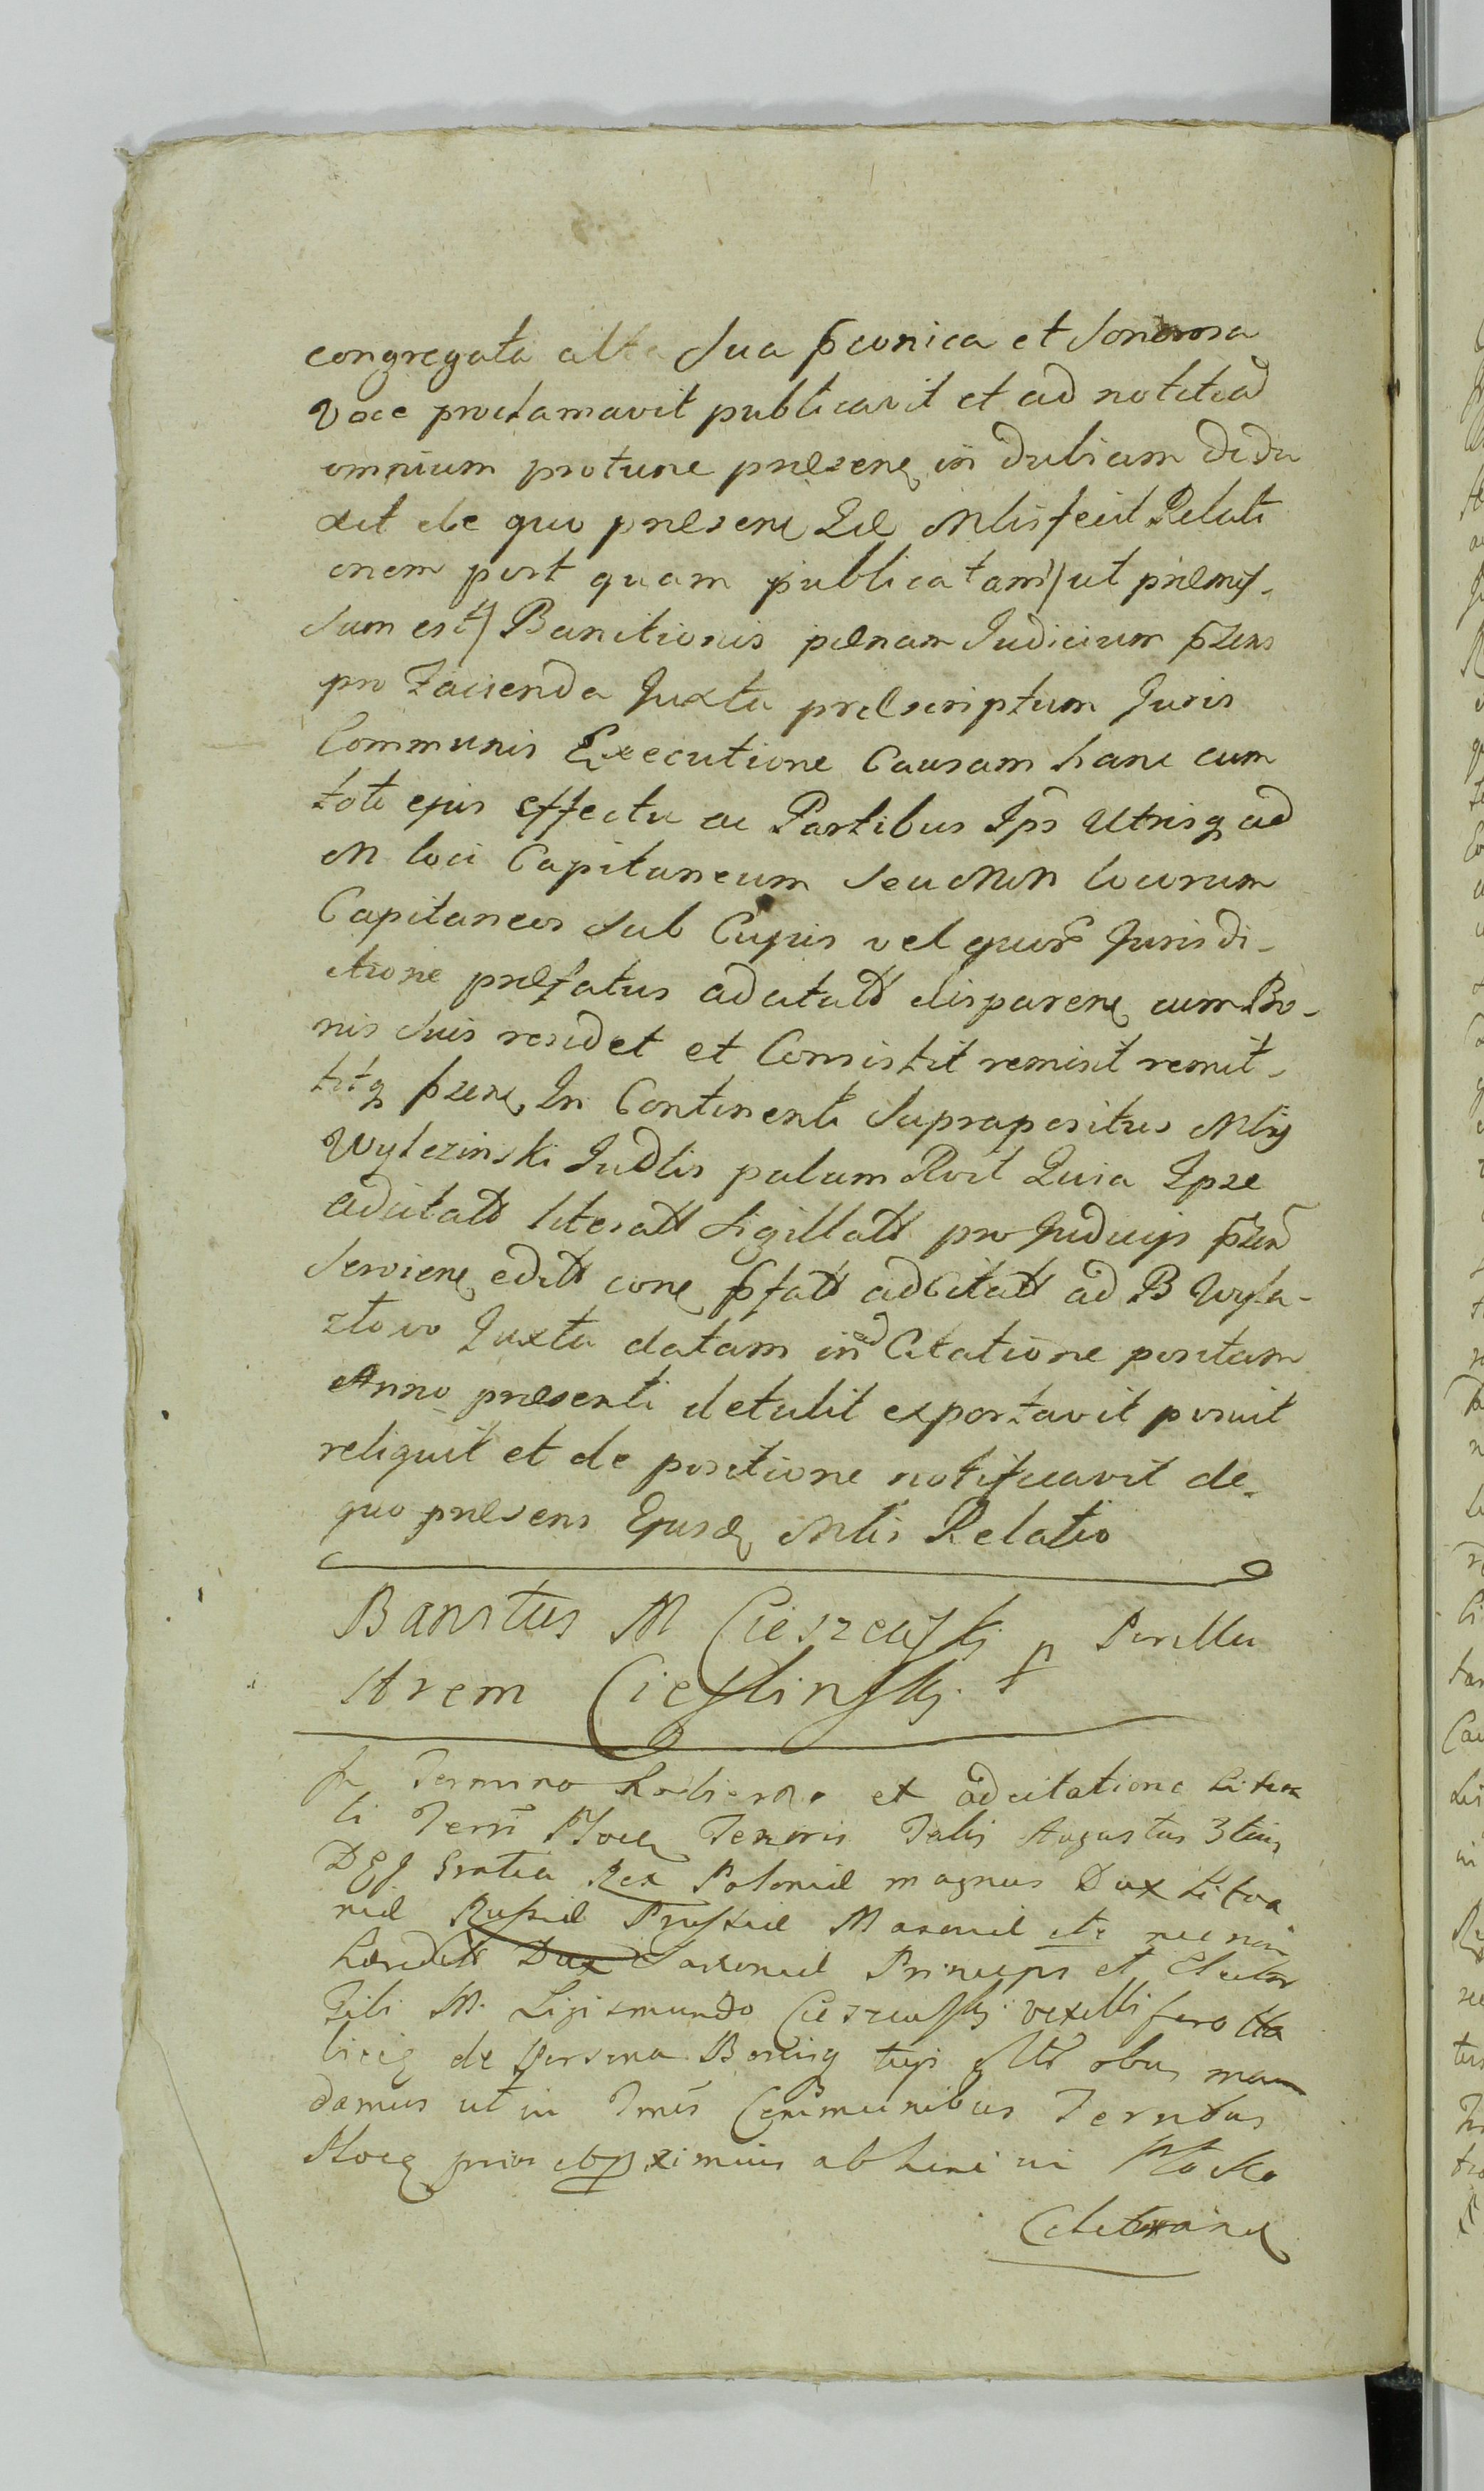 congregata alta sua pconica et Sonorosa
Voce proclamavit publicavit et ad notitiã
omnium protunc præsenẽ in dubiam dedu
xit de quo præsens Ejusdẽ Mlis fecit Relati
onem post quam publicatam /ut præmis-
sum est/ Banitionis pænam Judicium przens
pro facienda Juxta præscriptum Juris
Communis Executione Causam hanc cum
toto ejus effectu ac Partibus Ips Utrisq ad
M loci Capitaneum seu MM locorum
Capitaneos sub Cujus vel quor Jurisdi-
ctione præfatus adcitatt disparenẽ cum Bo-
nis suis residet et Consistit remisit remit-
titq przenẽ In Continenti Suprapositus Mlis
Wylezinski Judlis palam Rvit Quia Ipse
adcitatt literatt Sigillatt pro Judicijs przen
servienẽ editt conẽ pfatt adcitatt ad B Wyla-
ztowo Juxta datam in ad Citatione positam
Anno præsenti detulit exportavit posuit
reliquit et de positione notificavit de-
quo præsens Ejusdẽ Mlis Relatio
Banitus M Cieszewski p Perillu
strem Cieslinski
In Termino hodierno et adcitatione litera
li Terri Plocen Tenoris Talis Augustus 3tius
DEJ Gratia Rex Poloniæ magnus Dux Litva
niæ Russiæ Prussiæ Masoviæ etc necnon
hæreditt Dux Saxoniæ Princeps et Elector
Tibi M. Sigismundo Cieszewski vexillifero
de Persona Bonisq tujs obus man
damus ut in Tmis Communibus Terribus
Plocen prius et pximius ab hinc in Plocko
Celebranẽ